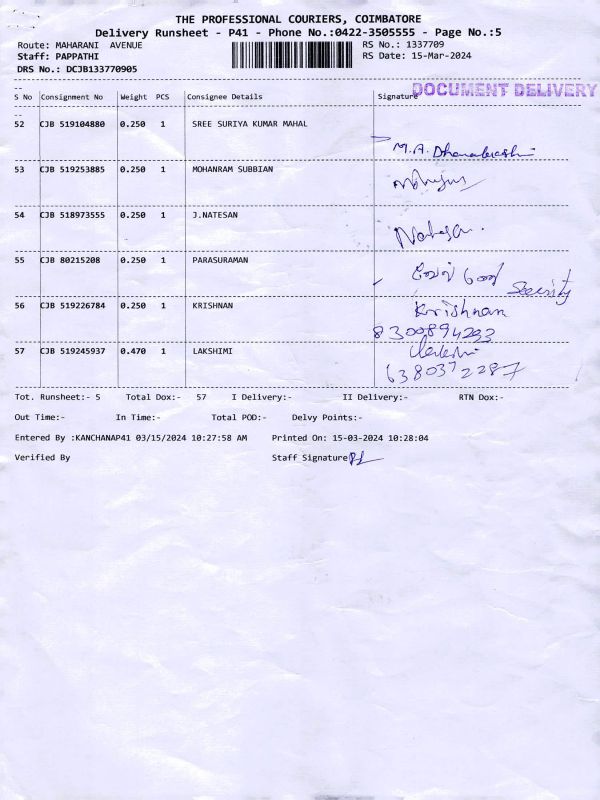 THE PROFESSIONAL COURIERS, COIMBATORE
Delivery Runsheet - P41 - Phone No.:0422-3505555 - Page No.:5
Route: MAHARANI AVENUE
RS No.: 1337709
Staff: PAPPATHI
RS Date: 15-Mar-2024
DRS No.: DCJB133770905
DOCUMENT DELIVERY
S No Consignment No Weight PCS Consignee Details Signature
52 CJB 519104880 0.250 1 SREE SURIYA KUMAR MAHAL
53 CJB 519253885 0.250 1 MOHANRAM SUBBIAN
54 CJB 518973555 0.250 1 J.NATESAN
Natesan.
55 CJB 80215208 0.250 1 PARASURAMAN
Security
56 CJB 519226784 0.250 1 KRISHNAN
Krishnan
8300894293
57 CJB 519245937 0.470 1 LAKSHIMI
6380372287
Tot. Runsheet:- 5 Total Dox:- 57 I Delivery:- II Delivery:- RTN Dox:-
Out Time:- In Time:- Total POD:- Delvy Points:-
Entered By :KANCHANAP41 03/15/2024 10:27:58 AM Printed On: 15-03-2024 10:28:04
Verified By Staff Signature